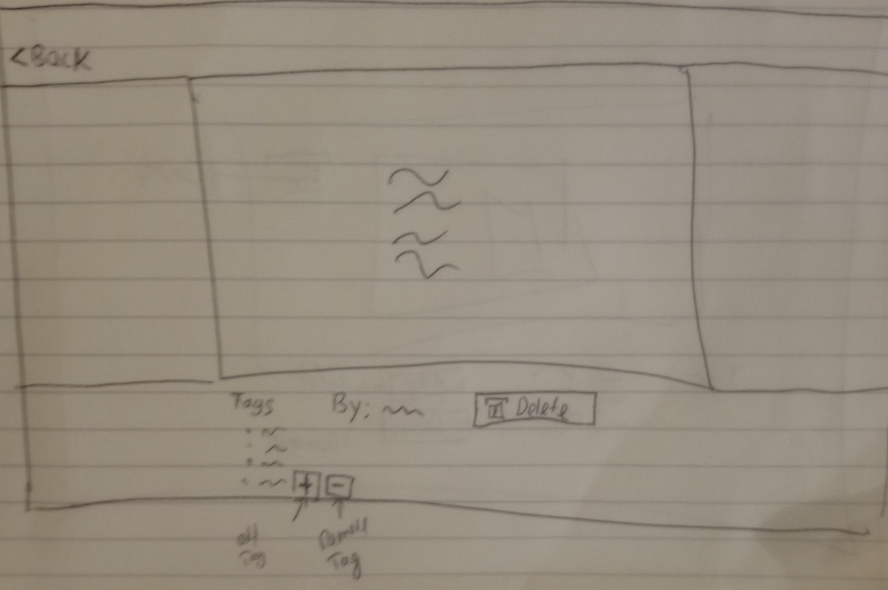 <Back
Tags By:
Delete
+ -
add Remove
Tag Tag